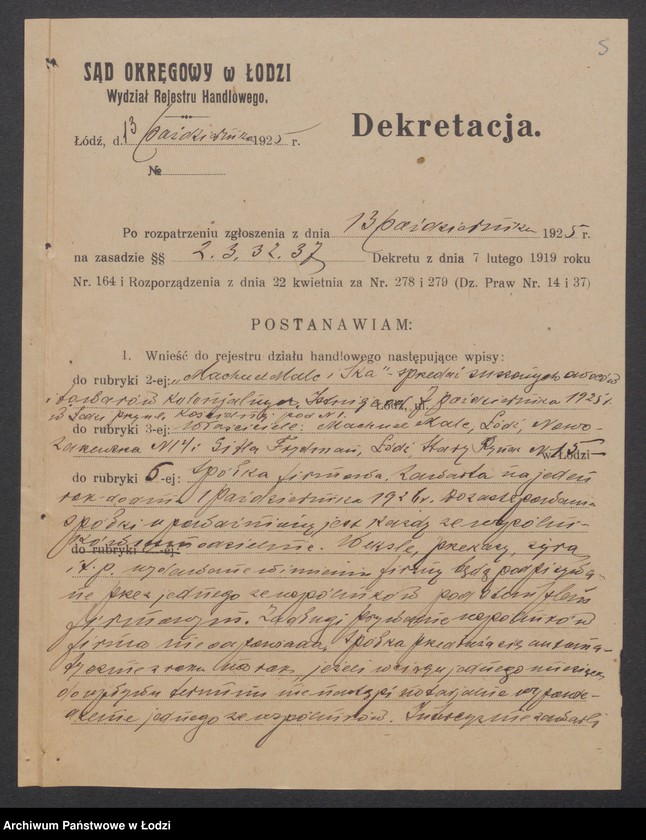 5
SĄD OKRĘGOWY w ŁODZI
Wydział Rejestru Handlowego.
Dekretacja.
Łódź, d. 13 października 1925 r.
№
Po rozpatrzeniu zgłoszenia z dnia 13 października 1925 r.
na zasadzie §§ 2. 3. 32. 37 Dekretu z dnia 7 lutego 1919 roku
Nr. 164 i Rozporządzenia z dnia 22 kwietnia za Nr. 278 i 279 (Dz. Praw Nr. 14 i 37)
POSTANAWIAM:
1. Wnieść do rejestru działu handlowego następujące wpisy:
do rubryki 2-ej: „Machuel Malc i Ska" sprzedaż suszonych owoców
i towarów kolonjalnych. Istnieje od 1 października 1925 r.
w Łodzi przy ul. Kościelnej pod № 1.
do rubryki 3-ej: Właściciele: Machuel Malc, Łódź, Nowo-
Zarzewska № 14 i Gitla Frydman, Łódź, Stary Rynek № 15 w Łodzi
do rubryki 6-ej: Spółka firmowa, zawarta na jeden
rok do dnia 1 października 1926 r. Do zastępowania
spółki upoważniony jest każdy ze wspólni-
do rubryki -ej:
ków samodzielnie. Weksle, przekazy, żyra
i t. p. wydawane w imieniu firmy będą podpisywa-
ne przez jednego ze wspólników pod stemplem
firmowym. Za długi prywatne wspólników
firma nie odpowiada. Spółka przedłuża się automa-
tycznie z roku na rok, jeżeli w ciągu jednego miesiąca
do upływu terminu nie nastąpi notarjalne wypowie-
dzenie jednego ze wspólników. Intercyz nie zawarli
Archiwum Państwowe w Łodzi